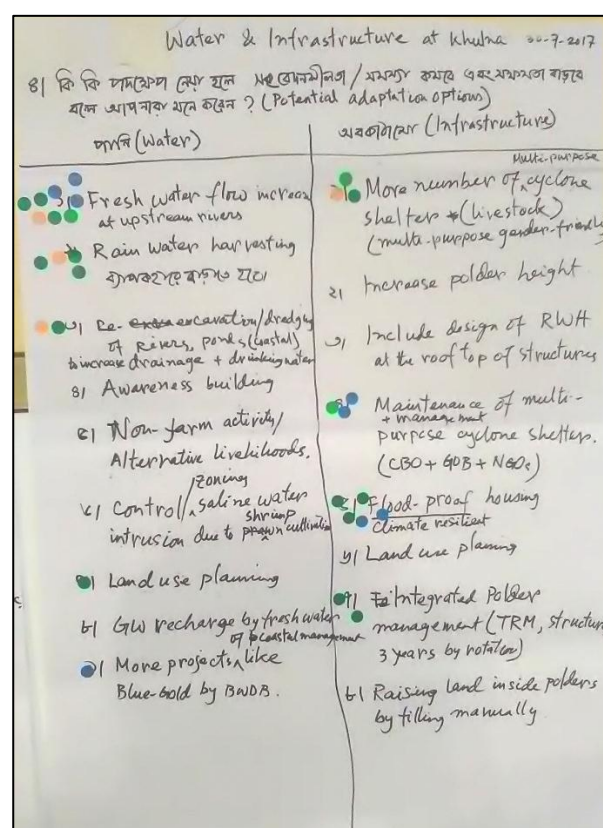 Water & Infrastructure at Khulna 30-7-2017
৪| কি কি পদক্ষেপ নেয়া হলে সংবেদনশীলতা / সমস্যা কমবে এবং সক্ষমতা বাড়বে
বলে আপনারা মনে করেন ? (Potential adaptation options)
পানি (Water)
Fresh water flow increase
at upstream rivers
Rain water harvesting
বাড়াতে হবে।
৩| Re-excavation/dredging
of Rivers, ponds (coastal)
to increase drainage + drinking water
৪| Awareness building
৫| Non-farm activity/
Alternative livelihoods.
zoning
৬| Control/ saline water
shrimp
intrusion due to cultivation
৭| Land use planning
৮| GW recharge by fresh water
of coastal management
৯| More projects like
Blue-Gold by BWDB.
অবকাঠামো (Infrastructure)
Multi-purpose
১| More number of cyclone
shelter (livestock)
(multi-purpose gender-friendly
২| Increase polder height
৩| Include design of RWH
at the roof top of structures
৪| Maintenance of multi-
+ management
purpose cyclone shelters.
(CBO + GOB + NGOs)
৫| Flood-proof housing
climate resilient
৬| Land use planing
৭| Integrated Polder
management (TRM, structure
3 years by rotation)
৮| Raising land inside polders
by filling manually